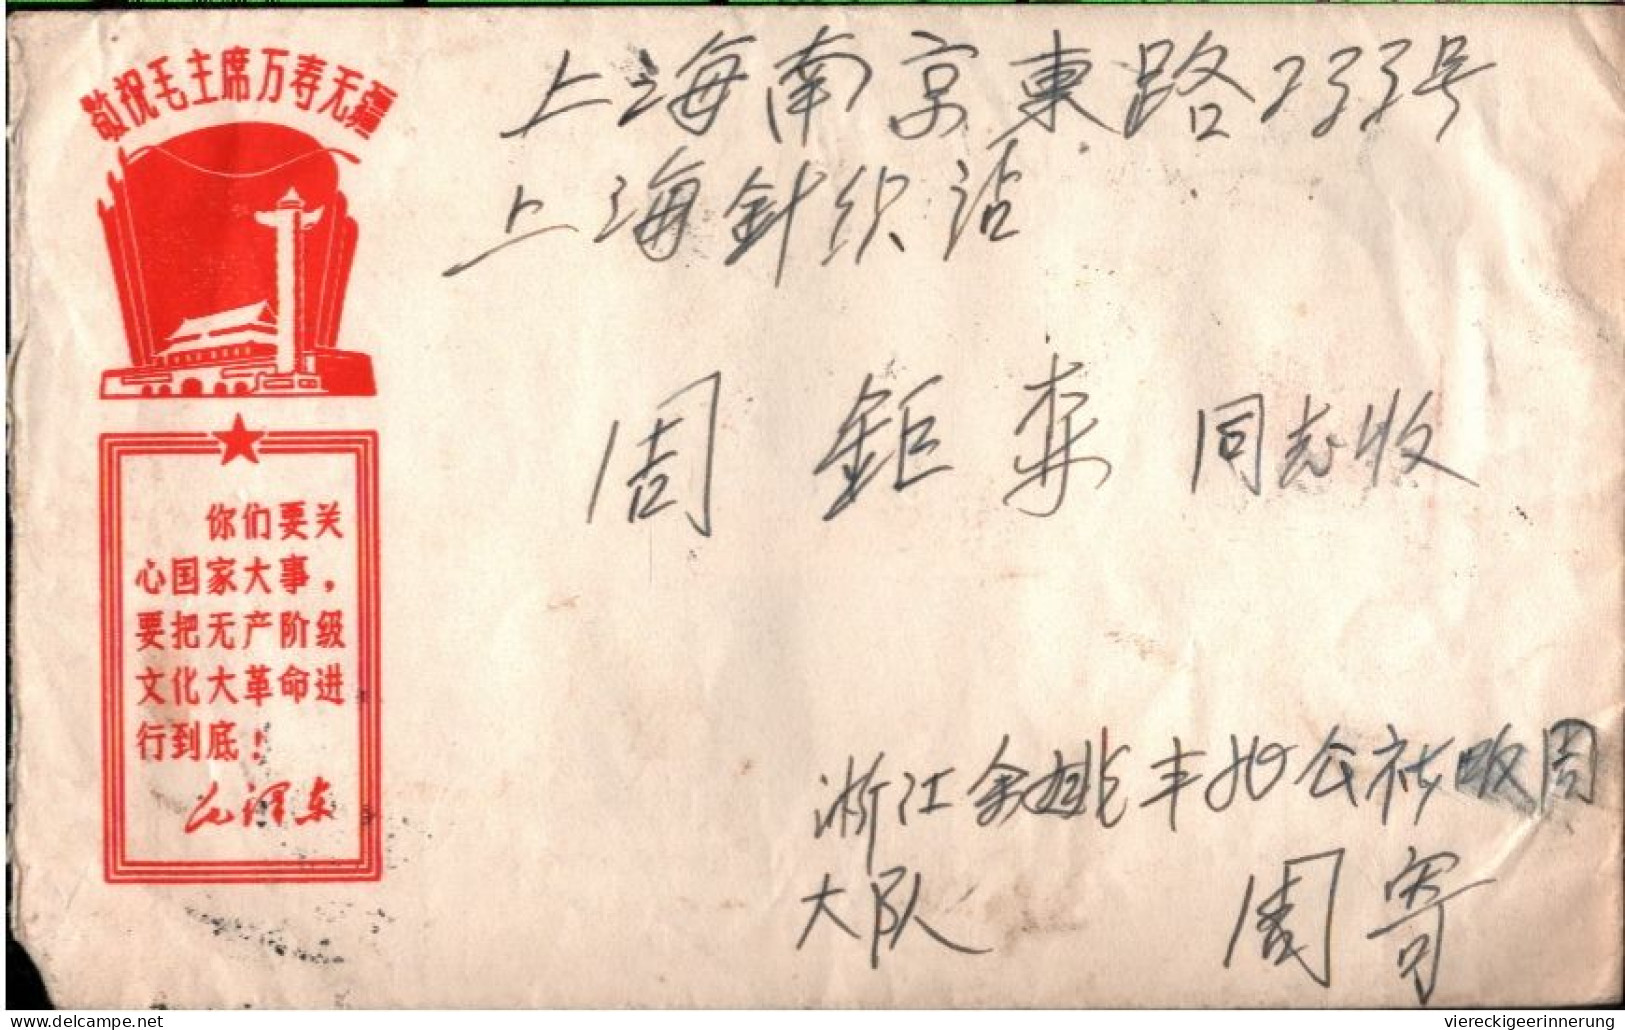 敬祝毛主席万寿无疆
你们要关
心国家大事，
要把无产阶级
文化大革命进
行到底！
毛泽东
上海南京東路233号
上海針织站
周鉅 同志收
浙江余姚丰北公社 周
大队 周寄
delcampe.net
viereckigeerinnerung